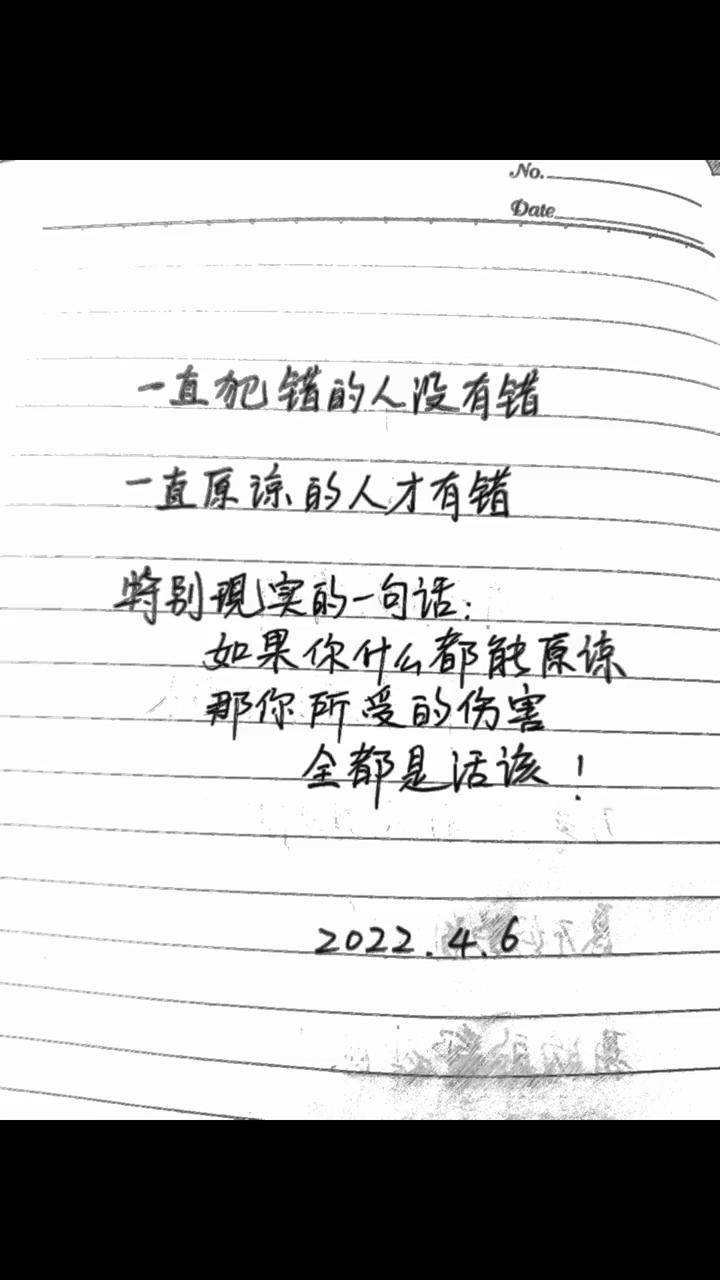 No.
Date
一直犯错的人没有错
一直原谅的人才有错
特别现实的一句话:
如果你什么都能原谅
那你所受的伤害
全都是活该!
2022.4.6